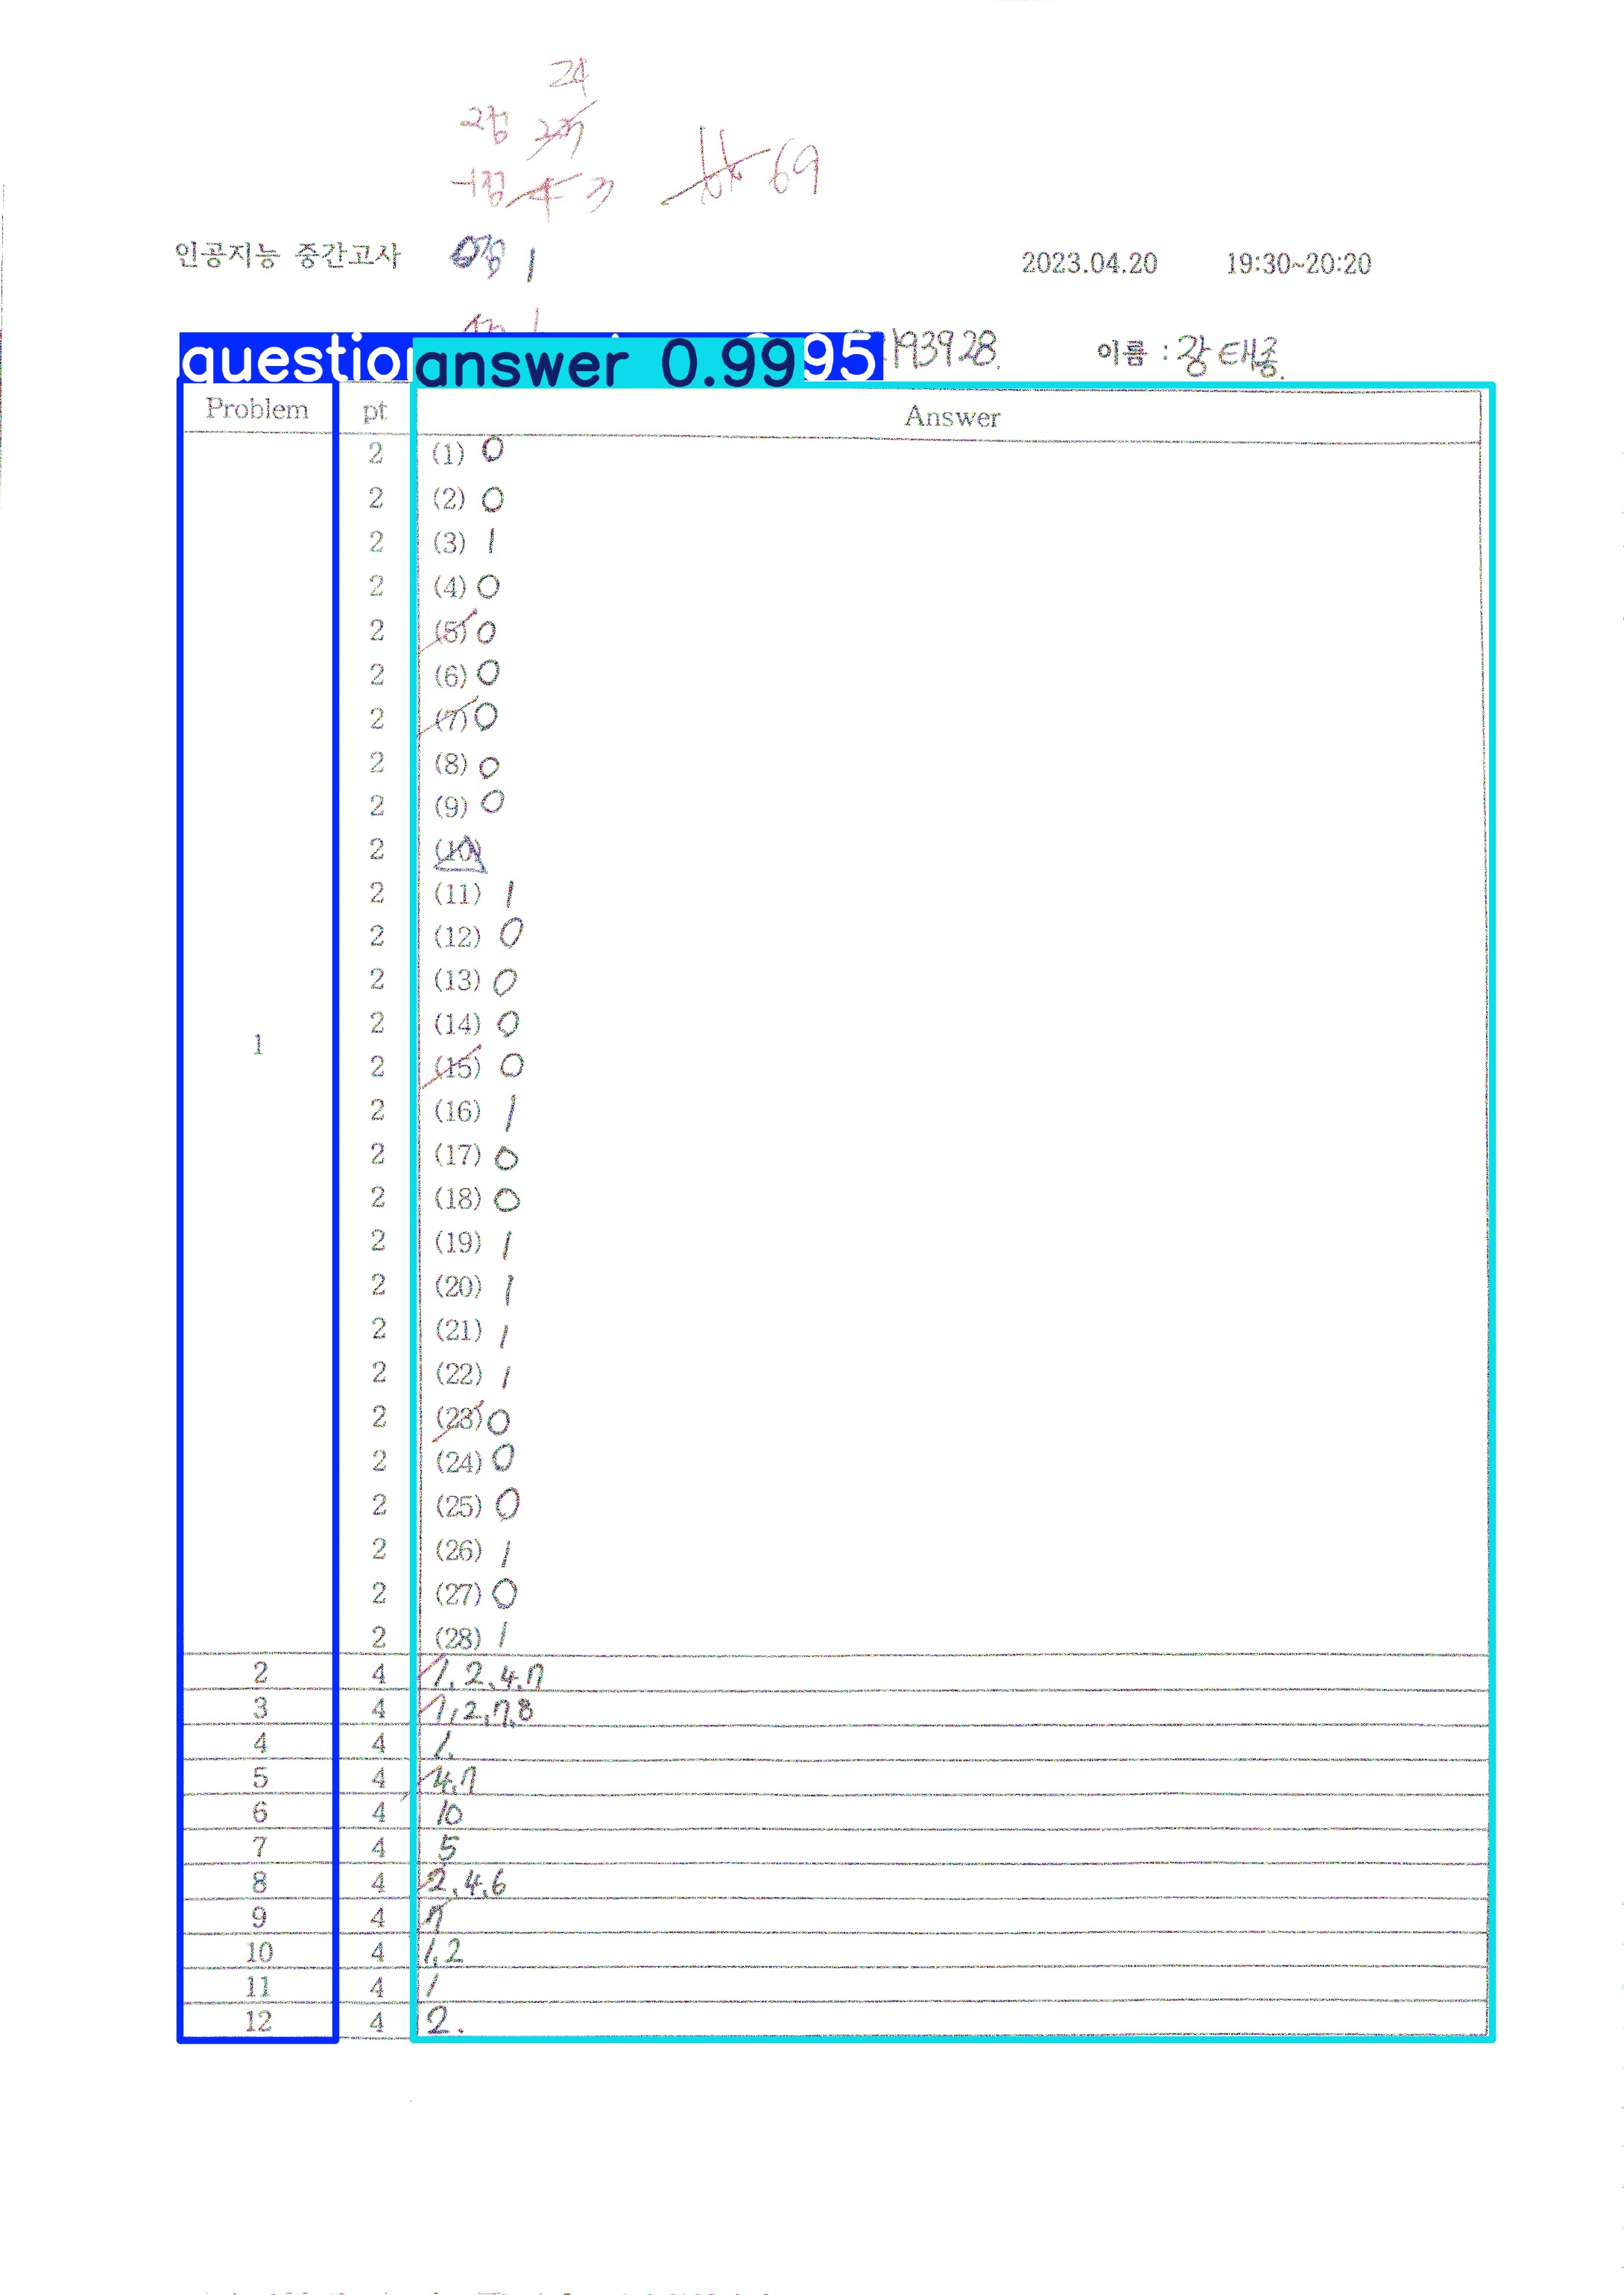 24
-2점 27
-1점 4 3 69
인공지능 중간고사 0점 1 2023.04.20 19:30~20:20
answer 0.99 95 193928. 이름 : 강태종.
Problem pt Answer
2 (1) 0
2 (2) 0
2 (3) 1
2 (4) 0
2 (5) 0
2 (6) 0
2 (7) 0
2 (8) 0
2 (9) 0
2 (10)
2 (11) 1
2 (12) 0
2 (13) 0
2 (14) 0
1
2 (15) 0
2 (16) 1
2 (17) 0
2 (18) 0
2 (19) 1
2 (20) 1
2 (21) 1
2 (22) 1
2 (23) 0
2 (24) 0
2 (25) 0
2 (26) 1
2 (27) 0
2 (28) 1
2 4 1, 2, 4, 7
3 4 1, 2, 7, 8
4 4 1.
5 4 4, 7
6 4 10
7 4 5
8 4 2, 4, 6
9 4 7
10 4 1, 2
11 4 1
12 4 2.